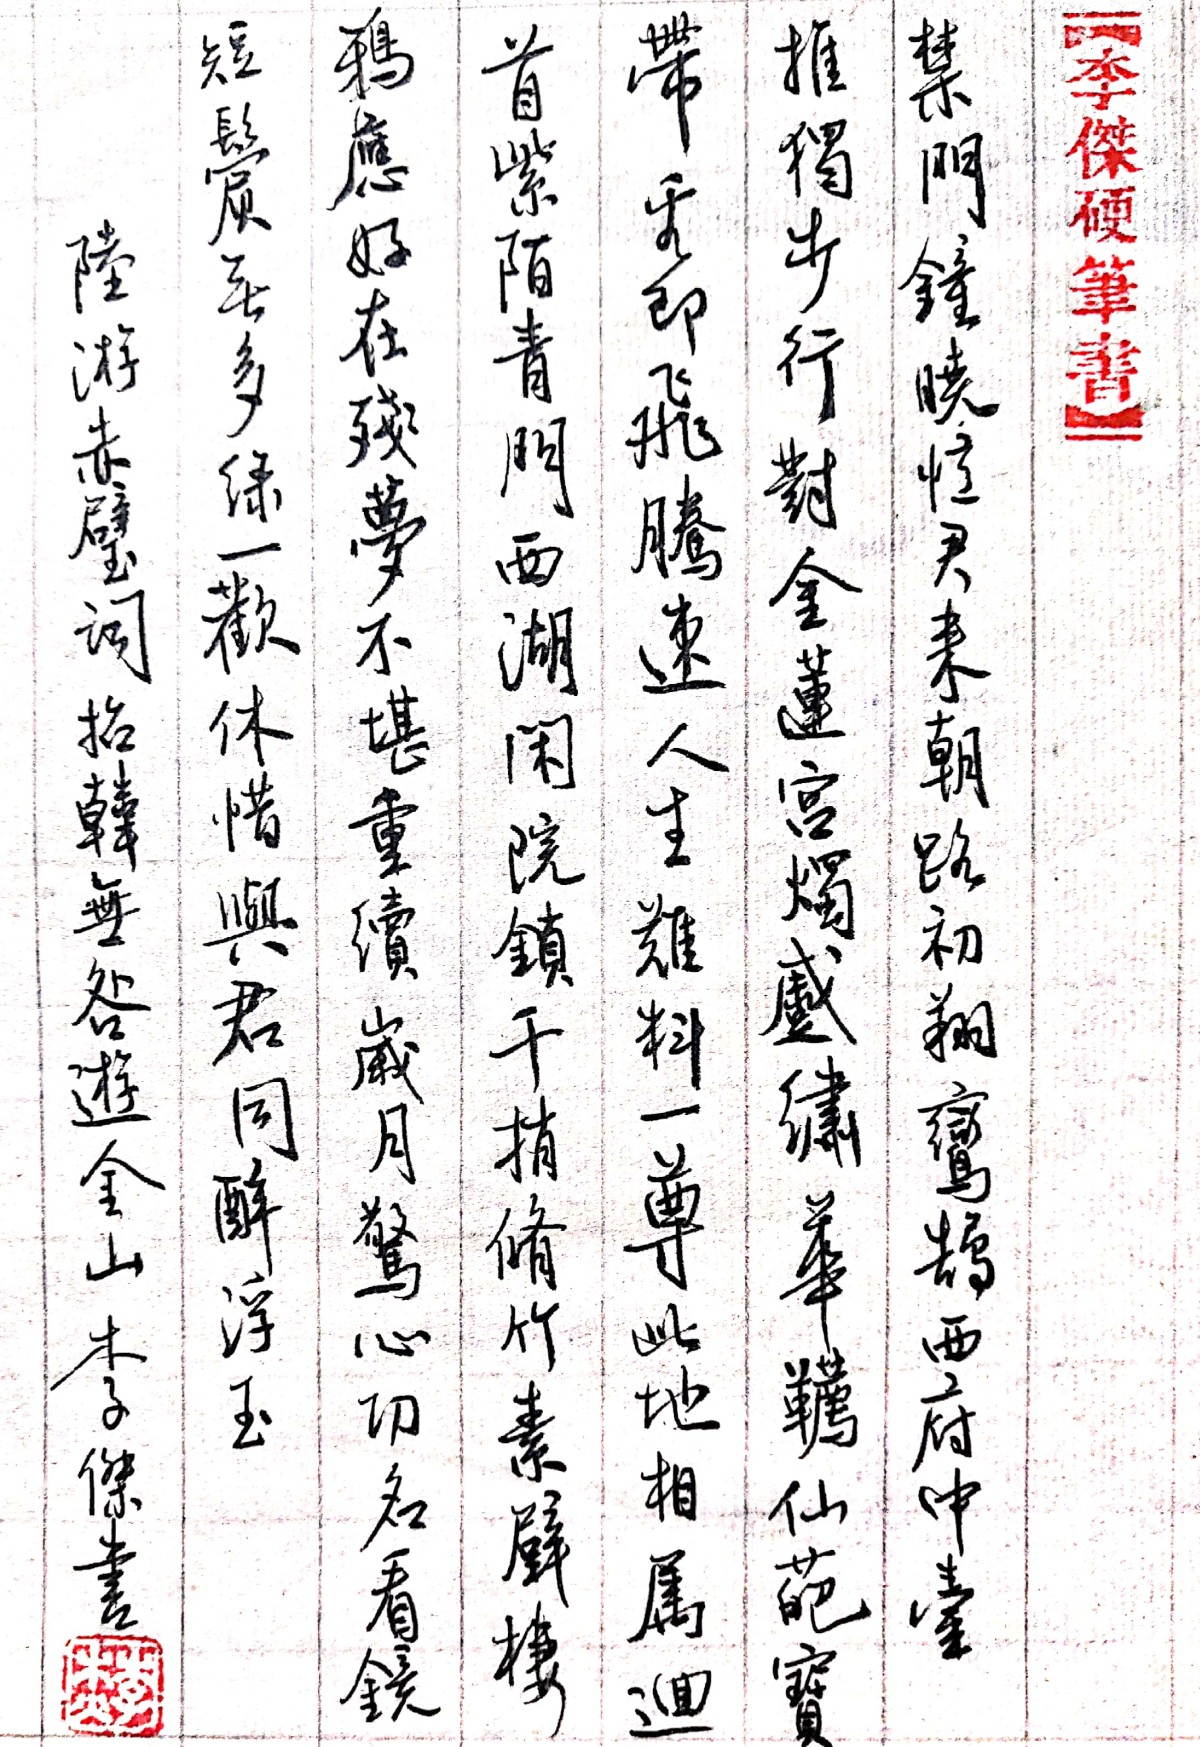 【李傑硬筆書】
禁門鐘曉憶君來朝路初翔鸞鵠西府中臺
推獨步行對金蓮宮燭蹙繡華韉仙葩寶
帶看即飛騰速人生難料一尊此地相屬迴
首紫陌青門西湖閑院鎖千梢脩竹素壁棲
鴉應好在殘夢不堪重續歲月驚心功名看鏡
短鬢無多綠一歡休惜與君同醉浮玉
陸游赤壁詞招韓無咎遊金山李傑書